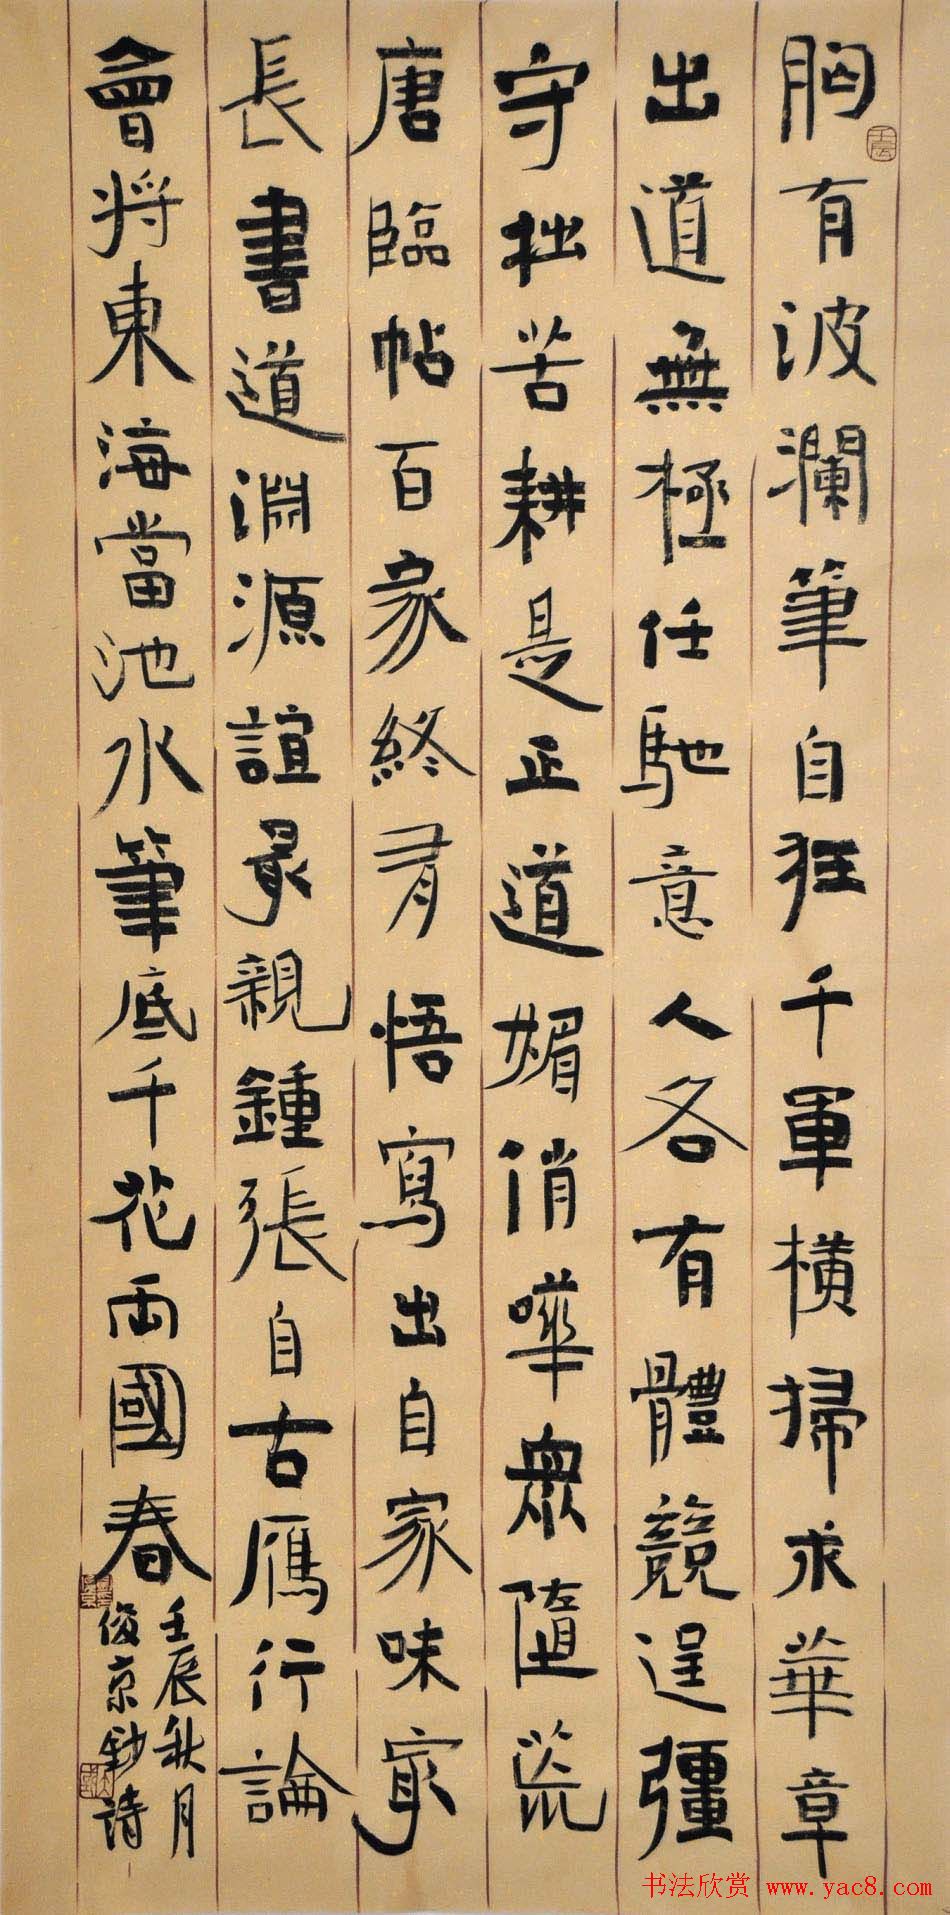 胸有波瀾筆自狂千軍橫掃求華章
出道無極任馳意人各有體競逞彊
守拙苦耕是正道媚俏嘩眾隨流
唐臨帖百家終有悟寫出自家味最
長書道淵源誼最親鍾張自古雁行論
會將東海當池水筆底千花兩國春
壬辰秋月
俊京鈔詩
书法欣赏 www.yac8.com